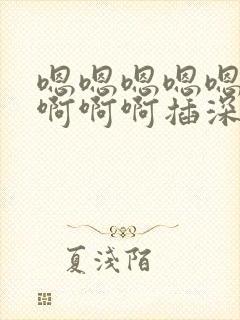 嗯嗯嗯嗯嗯
啊啊啊插深
夏浅陌